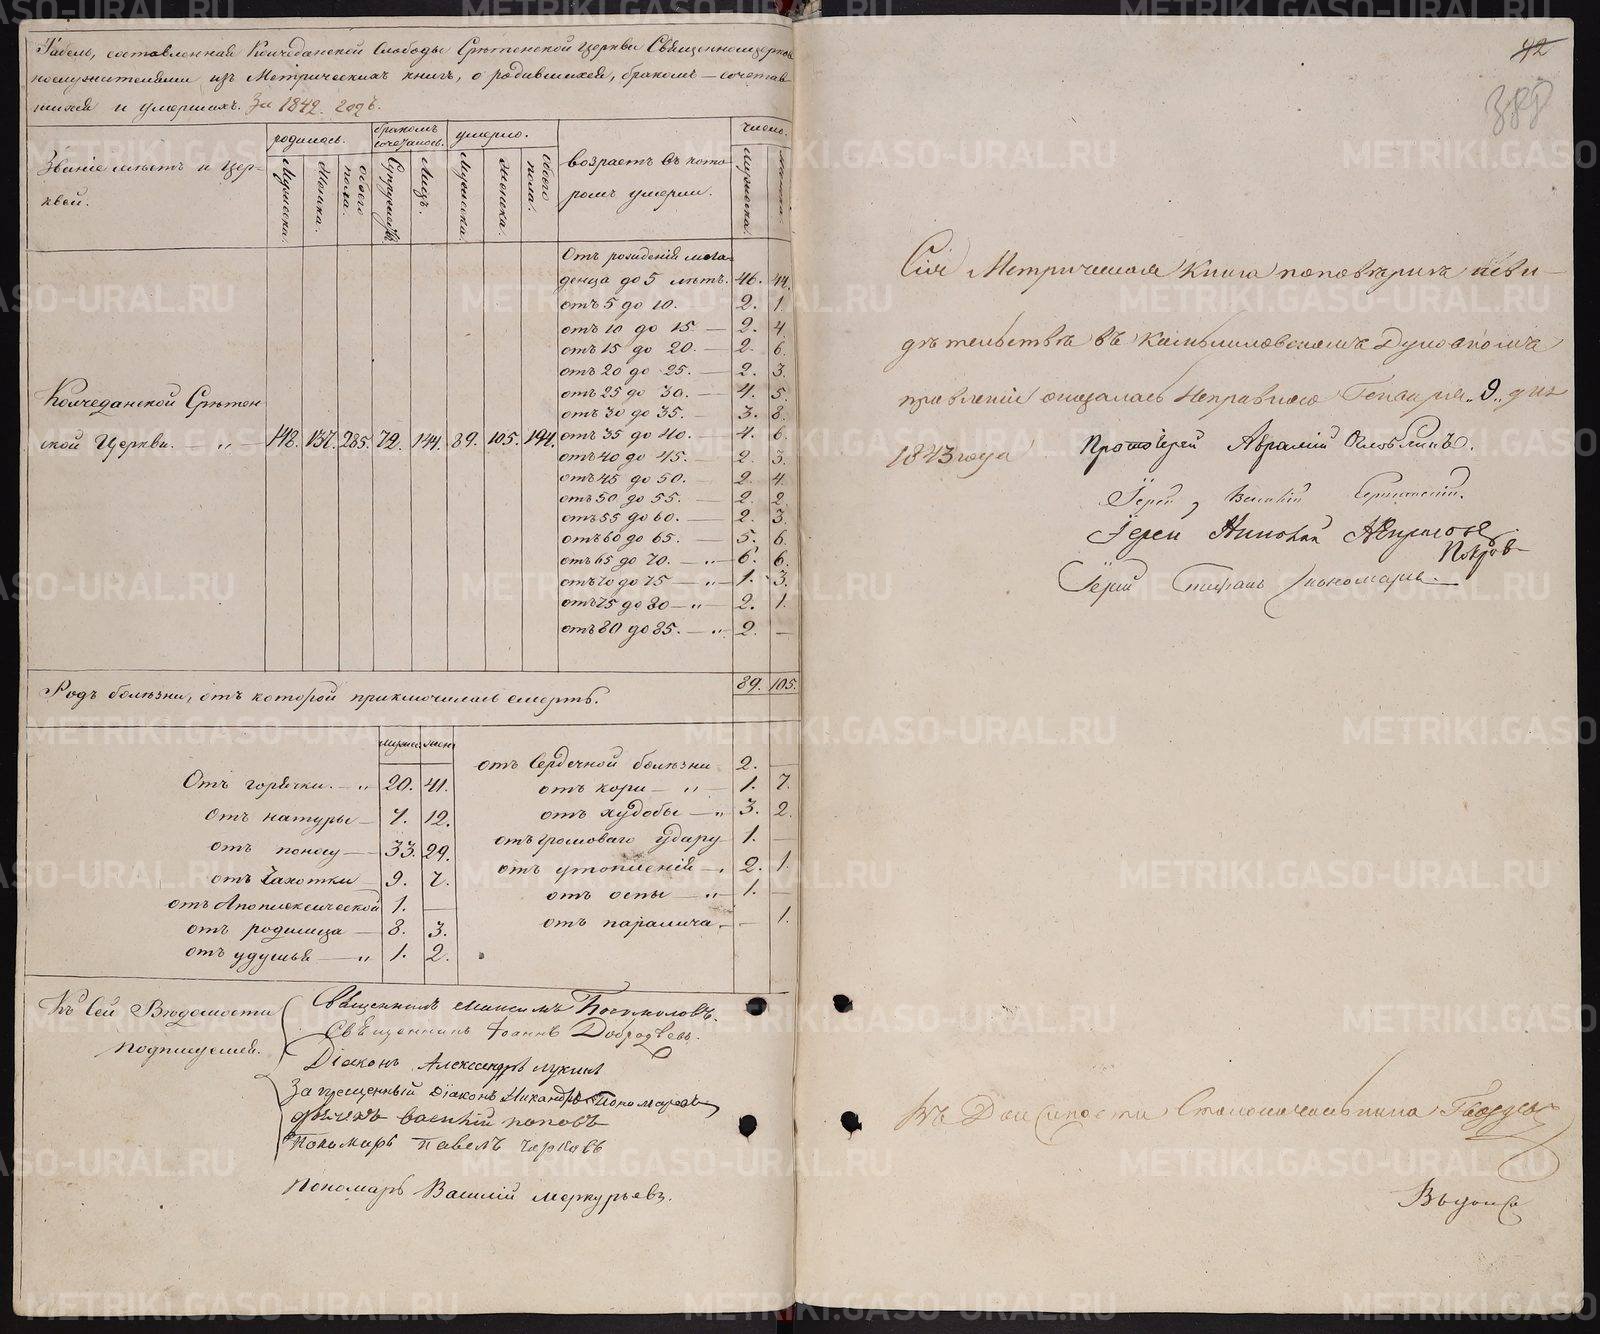 Табель, составленная Колчеданской Слободы Срѣтенской Церкви Священноцерков
нослужителями изъ Метрическихъ книгъ, о родившихся, бракомъ — сочетав
шихся и умершихъ. За 1842. годъ.
Званіе мѣстъ и цер-
квей.
родилось.
Мужеска.
Женска.
обоего пола.
бракомъ сочеталось.
Супружествъ
Лицъ.
умерло.
Мужеска.
Женска.
обоего пола.
возрастъ въ кото
ромъ умерли.
число.
Мужеска.
Женска.
Колчеданской Срѣтен
ской Церкви. — „ 148. 137. 285. 72. 144. 89. 105. 194.
Отъ рожденія мла
денца до 5 лѣтъ. 46. 44.
отъ 5 до 10. 2. 1.
отъ 10 до 15. — 2. 4.
отъ 15 до 20. — 2. 6.
отъ 20 до 25. — 2. 3.
отъ 25 до 30. — 4. 5.
отъ 30 до 35. — 3. 8.
отъ 35 до 40. — 4. 6.
отъ 40 до 45. — 2. 3.
отъ 45 до 50. — 2. 4.
отъ 50 до 55. — 2. 2.
отъ 55 до 60. — 2. 3.
отъ 60 до 65. — 5. 6.
отъ 65 до 70. — „ 6. 6.
отъ 70 до 75 — „ 1. 3.
отъ 75 до 80 — „ 2. 1.
отъ 80 до 85. — „ 2. —
89. 105.
Родъ болѣзни, отъ которой приключилась смерть.
мужес. женс.
Отъ горячки. — „ 20. 41.
Отъ натуры — 7. 12.
отъ поносу — 33. 29.
отъ Чахотки — 9. 7.
отъ Апоплексической 1. —
отъ родимца — 8. 3.
отъ удушья — „ 1. 2.
отъ Сердечной болѣзни 2. —
отъ кори — „ — 1. 7.
отъ худобы — „ 3. 2.
отъ громоваго удару 1. —
отъ утопленія — „ 2. 1.
отъ оспы — „ 1. —
отъ паралича — — 1.
Къ Сей Вѣдомости
подписуемся.
Священникъ Максимъ
Священникъ Іоаннъ Добродѣевъ.
Діаконъ Александръ Лукинъ
Запрещенный Діаконъ Никандръ Пономаревъ
дьячекъ Василій Поповъ
Пономарь Павелъ
Пономарь Василій Меркурьевъ.
42
388
Сія Метрическая Книга поповѣркѣ и сви —
дѣтельствѣ въ Камышловскомъ Духовномъ
правленіи оказалась Исправною Генваря „9„ дня
1843 года
Протоіерей Аврамій Оглоблинъ.
Іерей Василій
Іерей
Іерей Стефанъ Пономаревъ —
Въ Должности Столоначальника
METRIKI.GASO-URAL.RU